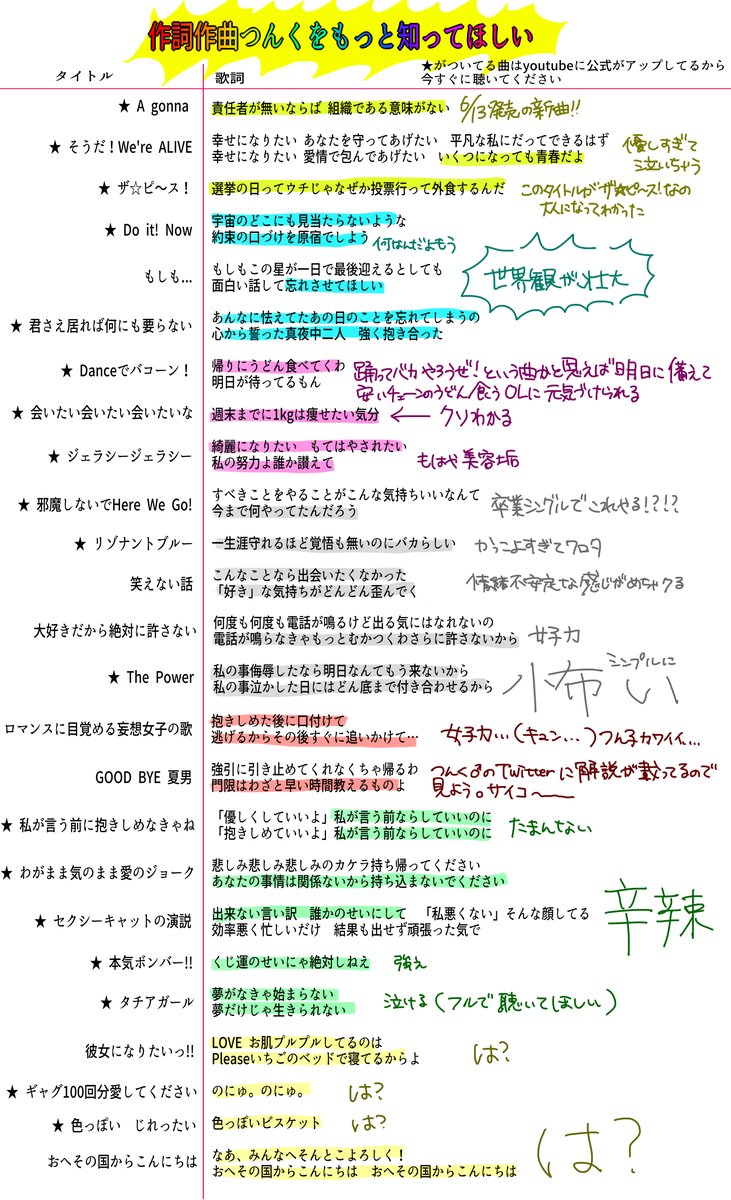 作詞作曲つんくをもっと知ってほしい
★がついてる曲はyoutubeに公式がアップしてるから
今すぐに聴いてください
タイトル
歌詞
★ A gonna
責任者が無いならば 組織である意味がない
6/13発売の新曲!!
★ そうだ！We're ALIVE
幸せになりたい あなたを守ってあげたい 平凡な私にだってできるはず
幸せになりたい 愛情で包んであげたい いくつになっても青春だよ
優しすぎて
泣いちゃう
★ ザ☆ピ～ス！
選挙の日ってウチじゃなぜか投票行って外食するんだ
このタイトルがザ☆ピ～ス!なの
大人になってわかった
★ Do it! Now
宇宙のどこにも見当たらないような
約束の口づけを原宿でしよう
何なんだよもう
もしも…
もしもこの星が一日で最後迎えるとしても
面白い話して忘れさせてほしい
世界観が壮大
★ 君さえ居れば何にも要らない
あんなに怯えてたあの日のことを忘れてしまうの
心から誓った真夜中二人 強く抱き合った
★ Danceでバコーン！
帰りにうどん食べてくわ
明日が待ってるもん
踊ってバカやろうぜ!という曲かと思えば明日に備えて
安いチェーンのうどん食うOLに元気づけられる
★ 会いたい会いたい会いたいな
週末までに1kgは痩せたい気分
← クソわかる
★ ジェラシージェラシー
綺麗になりたい もてはやされたい
私の努力よ誰か讃えて
もはや美容垢
★ 邪魔しないでHere We Go!
すべきことをやることがこんな気持ちいいなんて
今まで何やってたんだろう
卒業シングルでこれやる!?!?
★ リゾナントブルー
一生涯守れるほど覚悟も無いのにバカらしい
かっこよすぎてワロタ
笑えない話
こんなことなら出会いたくなかった
「好き」な気持ちがどんどん歪んでく
情緒不安定な感じがめちゃクる
大好きだから絶対に許さない
何度も何度も電話が鳴るけど出る気にはなれないの
電話が鳴らなきゃもっとむかつくわさらに許さないから
女子力
★ The Power
私の事侮辱したなら明日なんてもう来ないから
私の事泣かした日にはどん底まで付き合わせるから
シンプルに
怖い
ロマンスに目覚める妄想女子の歌
抱きしめた後に口付けて
逃げるからその後すぐに追いかけて…
女子力…(キュン…)つん子カワイイ…
GOOD BYE 夏男
強引に引き止めてくれなくちゃ帰るわ
門限はわざと早い時間教えるものよ
つんく♂のTwitterに解説が載ってるので
見よう。サイコ～
★ 私が言う前に抱きしめなきゃね
「優しくしていいよ」私が言う前ならしていいのに
「抱きしめていいよ」私が言う前ならしていいのに
たまんない
★ わがまま気のまま愛のジョーク
悲しみ悲しみ悲しみのカケラ持ち帰ってください
あなたの事情は関係ないから持ち込まないでください
★ セクシーキャットの演説
出来ない言い訳 誰かのせいにして 「私悪くない」そんな顔してる
効率悪く忙しいだけ 結果も出せず頑張った気で
辛辣
★ 本気ボンバー!!
くじ運のせいにゃ絶対しねえ
強え
★ タチアガール
夢がなきゃ始まらない
夢だけじゃ生きられない
泣ける(フルで聴いてほしい)
彼女になりたいっ!!
LOVE お肌プルプルしてるのは
Pleaseいちごのベッドで寝てるからよ
は?
★ ギャグ100回分愛してください
のにゅ。のにゅ。
は?
★ 色っぽい じれったい
色っぽいビスケット
は?
おへその国からこんにちは
なあ、みんなへそんとこよろしく！
おへその国からこんにちは おへその国からこんにちは
は?